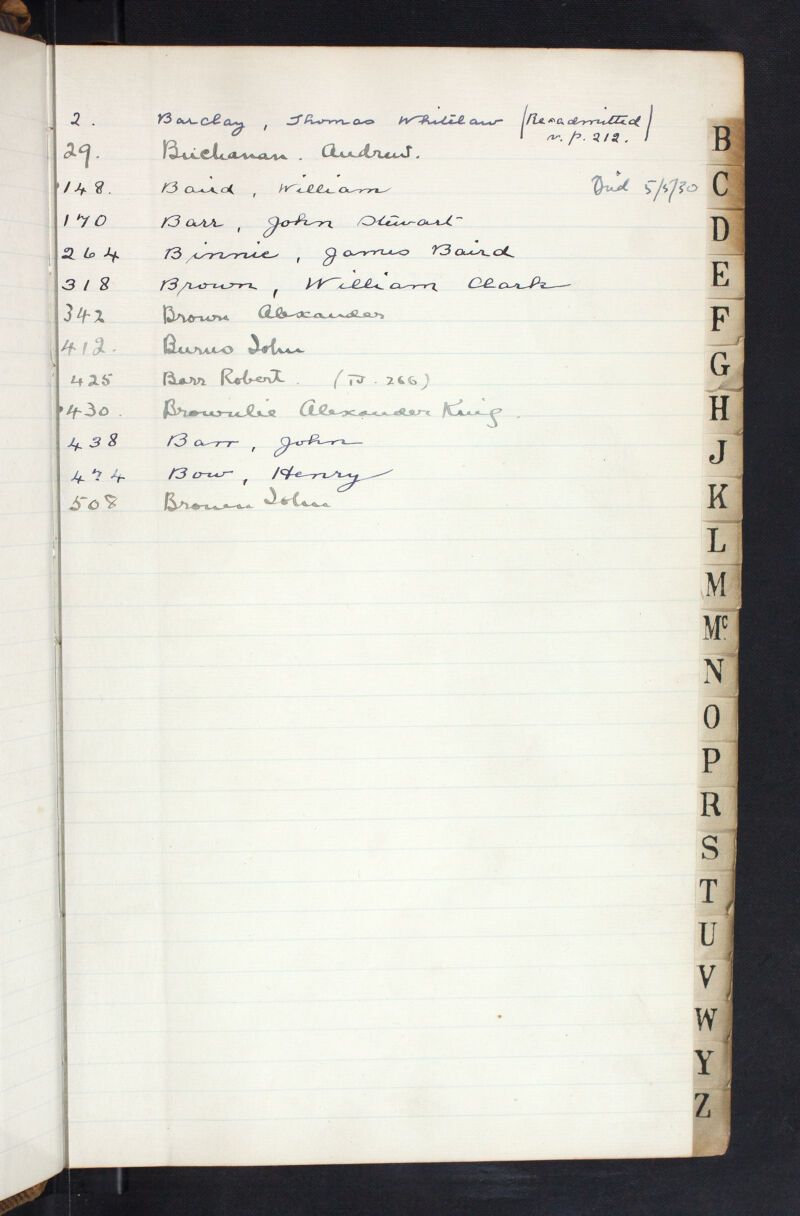 2. Barclay, Thomas Whitelaw (Re-admitted
v. p. 212.)
29. Buchanan. Andrew.
148. Baird, William Died 5/5/30
170 Barr, John Stewart
264 Binnie, James Baird
318 Brown, William Clark
342 Brown Alexander
412. Burns John
425 Barr Robert. ( 266)
430. Brownlie Alexander King.
438 Barr, John
474 Bow, Henry
508 Brown John
B
C
D
E
F
G
H
J
K
L
M
Mc.
N
O
P
R
S
T
U
V
W
Y
Z